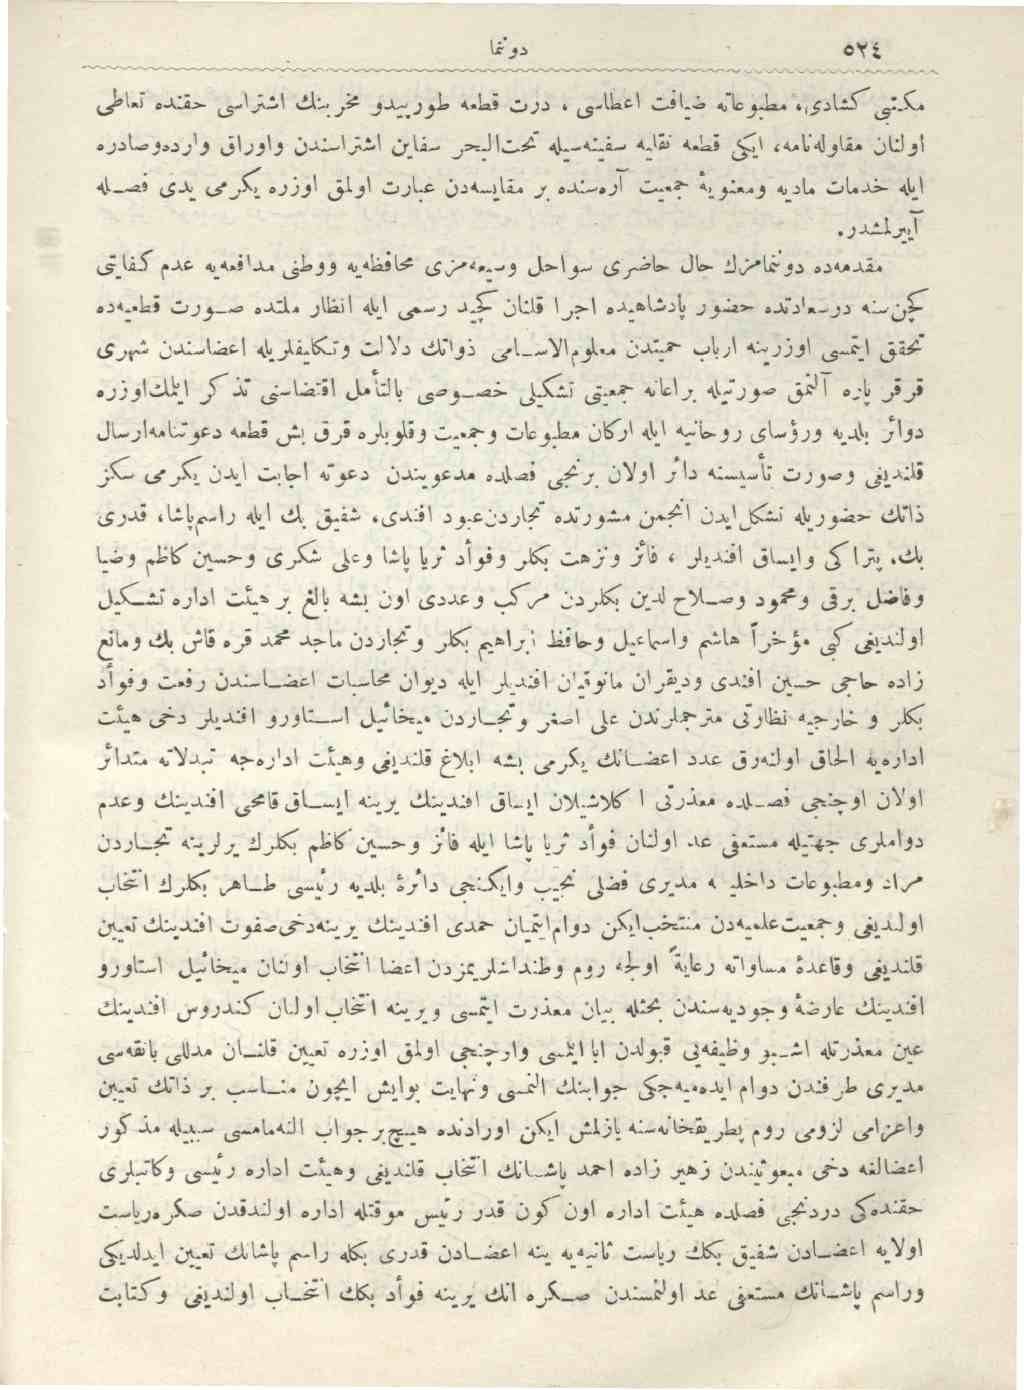 ٥٢٤ دوننما
مكتبى كشادى، مطبوعاته ضيافت اعطاسى ، درت قطعه طورپيدو مخربنك اشتراسى حقنده تعاطى
اولنان مقاوله‌نامه، ايكى قطعه نقليه سفينه‌سيله تحت‌البحر سفاين اشتراسندن واوراق وارده‌وصادره
ايله خدمات ماديه ومعنويهٔ جمعيت آره‌سنده بر مقايسه‌دن عبارت اولمق اوزره يكرمى يدى فصـله
آييرلمشدر.
مقدمه‌ده دوننمامزك حال حاضرى سواحل وسيعه‌مزى محافظه‌يه ووطنى مدافعه‌يه عدم كفايتى
كچن‌سنه درسعادتده حضور پادشاهيده اجرا قلنان كچيد رسمى ايله انظار ملتده صـورت قطعيه‌ده
تحقق ايتمسى اوزرينه ارباب حميتدن معلوم‌الاسـامى ذواتك دلالت وتكليفلريله اعضاسندن شهرى
قرقر پاره آلنمق صورتيله براعانه جمعيتى تشكيلى خصـوصى بالتأمل اقتضاسنى تذكر ايلمك‌اوزره
دوائر بلديه ورؤساى روحانيه ايله اركان مطبوعات وجمعيت وقلوبلره قرق بش قطعه دعوتنامه‌ارسال
قلنديغى وصورت تأسيسنه دائر اولان برنجى فصلده مدعويندن دعوته اجابت ايدن يكرمى سكز
ذاتك حضوريله تشكل‌ايدن انجمن مشورتده تجاردن‌عبود افندى، شفيق بك ايله راسم‌پاشا، قدرى
بك، پتراكى وايساق افنديلر ، فائز ونزهت بكلر وفوأد ثريا پاشا وعلى شكرى وحسين كاظم وضيا
وفاضل برقى ومحمود وصـلاح لدين بكلردن مركب وعددى اون بشه بالغ بر هيئت اداره تشـكيل
اولنديغى كبى مؤخراً هاشم واسماعيل وحافظ ابراهيم بكلر وتجاردن ماجد محمد قره قاش بك ومانع
زاده حاجى حسين افندى وديقران مانوقيان افنديلر ايله ديوان محاسبات اعضـاسندن رفعت وفوأد
بكلر و خارجيه نظارتى مترجملرندن على اصغر وتجـاردن ميخائيل اسـتاورو افنديلر دخى هيئت
اداره‌يه الحاق اولنه‌رق عدد اعضـانك يكرمى بشه ابلاغ قلنديغى وهيئت اداره‌جه تبدلاته متدائر
اولان اوچنجى فصـلده معذرتى اكلاشيلان ايساق افندينك يرينه ايسـاق قامحى افندينك وعدم
دواملرى جهتيله مستعفى عد اولنان فوأد ثريا پاشا ايله فائز وحسين كاظم بكلرك يرلرينه تجـاردن
مراد ومطبوعات داخليه مديرى فضلى نجيب وايكنجى دائرهٔ بلديه رئيسى طـاهر بكلرك انتخاب
اولنديغى وجمعيت‌علميه‌دن منتخب‌ايكن دوام‌ايتميان حمدى افندينك يرينه‌دخى‌صفوت افندينك تعيين
قلنديغى وقاعدهٔ مساواته رعايةً اولجه روم وطنداشلريمزدن اعضا انتخاب اولنان ميخائيل استاورو
افندينك عارضهٔ وجوديه‌سندن بحثله بيان معذرت ايتمسى ويرينه انتخاب اولنان كندروس افندينك
عين معذرتله اشـبو وظيفه‌يى قبولدن ابا ايلمسى وارچنجى اولمق اوزره تعيين قلنـان مدللى بانقه‌سى
مديرى طرفندن دوام ايده‌ميه‌جكى جوابنك النمسى ونهايت بوايش ايچون منـاسب بر ذاتك تعيين
واعزامى لزومى روم پطريقخانه‌سنه يازلمش ايكن اورادنده هيچ‌برجواب النه‌مامسى سببيله مذكور
اعضالغه دخى مبعوثيندن زهير زاده احمد پاشـانك انتخاب قلنديغى وهيئت اداره رئيسى وكاتبلرى
حقنده‌كى دردنجى فصلده هيئت اداره اون كون قدر رئيس موقتله اداره اولندقدن صكره‌رياست
اولايه اعضـادن شفيق بكك رياست ثانيه‌يه ينه اعضـادن قدرى بكله راسم پاشانك تعيين ايدلديكى
وراسم پاشـانك مستعفى عد اولنمسندن صـكره انك يرينه فوأد بكك انتخـاب اولنديغى وكتابت